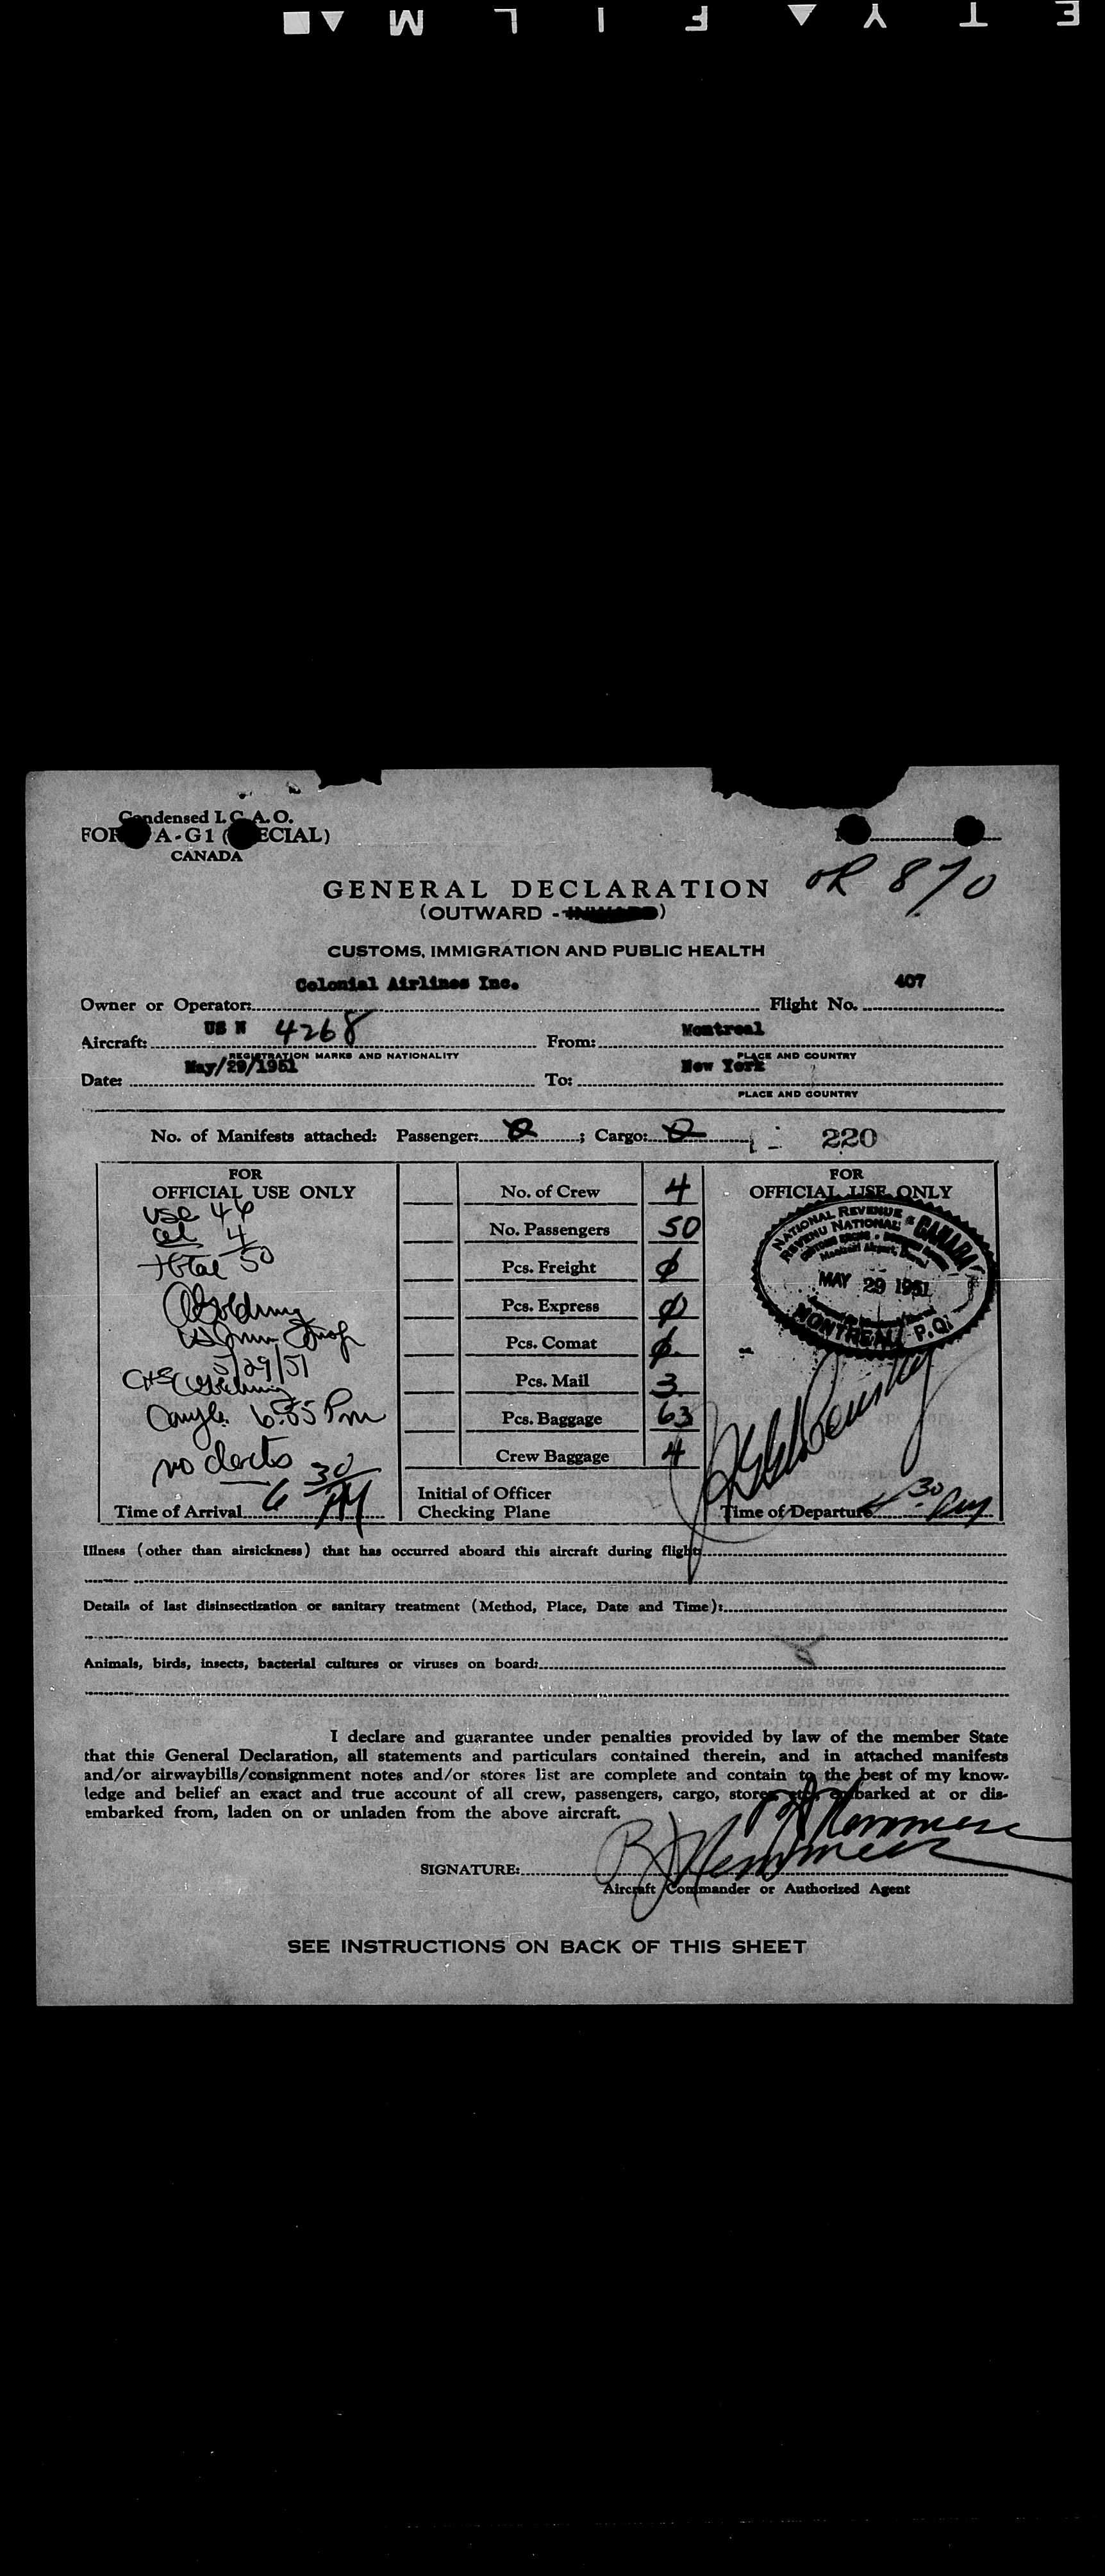 SAFETY FILM
Condensed I.C.A.O.
FORM A-G1 (SPECIAL)
CANADA
OR 870
GENERAL DECLARATION
(OUTWARD - INWARD)
CUSTOMS, IMMIGRATION AND PUBLIC HEALTH
Owner or Operator: Colonial Airlines Inc. Flight No. 407
Aircraft: US N 4268 From: Montreal
REGISTRATION MARKS AND NATIONALITY PLACE AND COUNTRY
Date: May/29/1951 To: New York
PLACE AND COUNTRY
No. of Manifests attached: Passenger: 0; Cargo: 0 220
FOR
OFFICIAL USE ONLY
USC 46
4
total 50
5/29/51
6:55 Pm
no docts
Time of Arrival 6 30 PM
No. of Crew 4
No. Passengers 50
Pcs. Freight 0
Pcs. Express 0
Pcs. Comat 0
Pcs. Mail 3
Pcs. Baggage 63
Crew Baggage 4
Initial of Officer
Checking Plane
FOR
OFFICIAL USE ONLY
NATIONAL REVENUE CANADA
REVENU NATIONAL
MAY 29 1951
MONTREAL P.Q.
Time of Departure 30
Illness (other than airsickness) that has occurred aboard this aircraft during flight:
Details of last disinsectization or sanitary treatment (Method, Place, Date and Time):
Animals, birds, insects, bacterial cultures or viruses on board:
I declare and guarantee under penalties provided by law of the member State
that this General Declaration, all statements and particulars contained therein, and in attached manifests
and/or airwaybills/consignment notes and/or stores list are complete and contain to the best of my know-
ledge and belief an exact and true account of all crew, passengers, cargo, stores etc. embarked at or dis-
embarked from, laden on or unladen from the above aircraft.
SIGNATURE:
Aircraft Commander or Authorized Agent
SEE INSTRUCTIONS ON BACK OF THIS SHEET